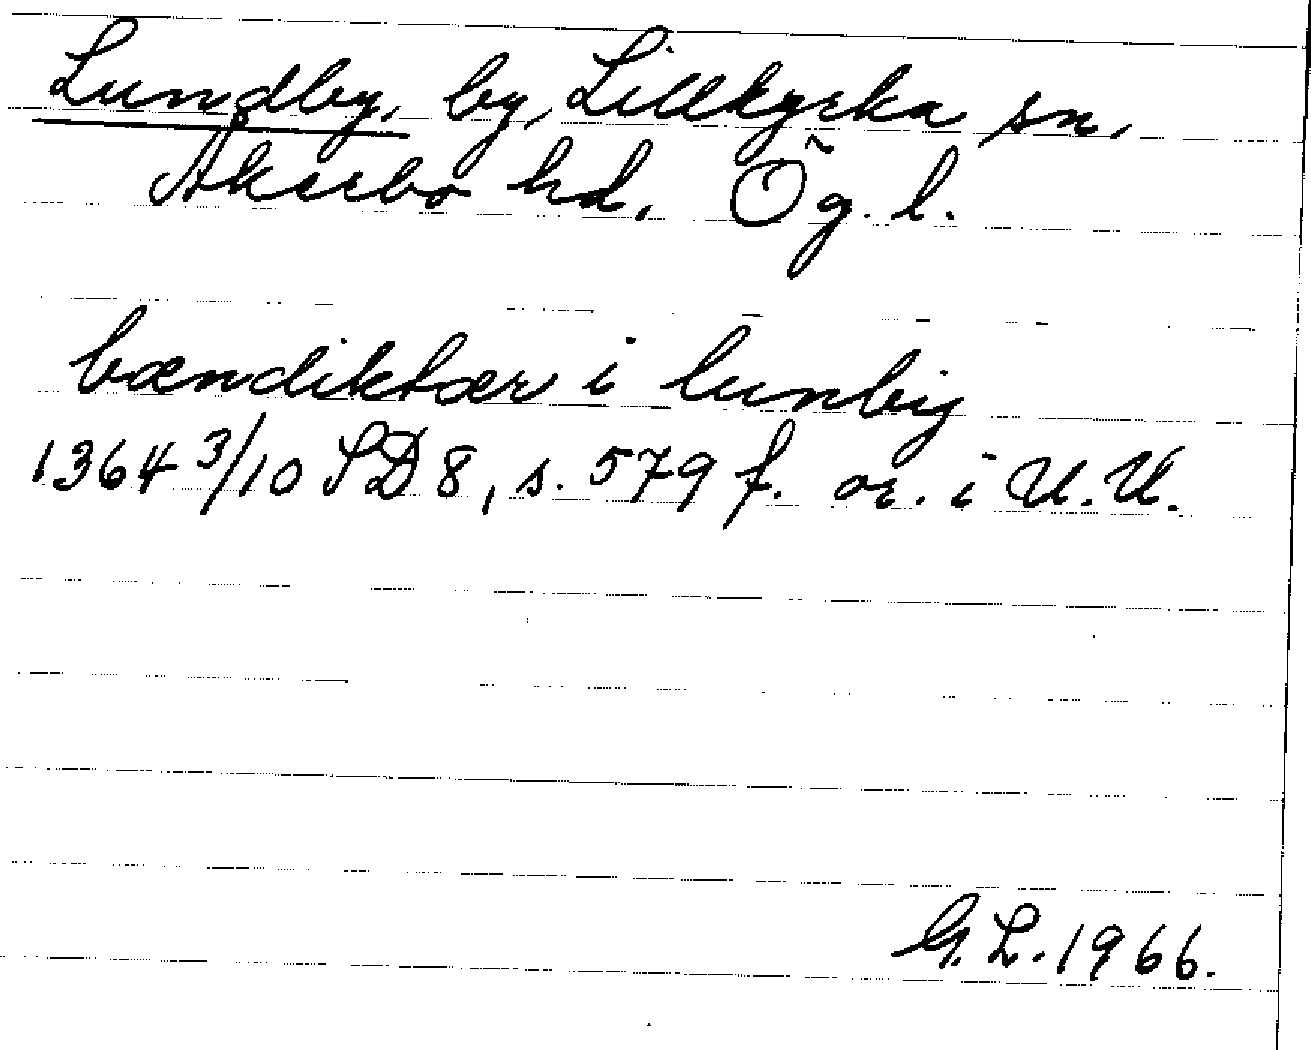 Lundby, by, Lillkyrka sn,
Åkerbo hd, Ög. l.
bændiktær i lunby
1364 3/10 SD 8, s. 579 f. or. i U.U.
G. L. 1966.